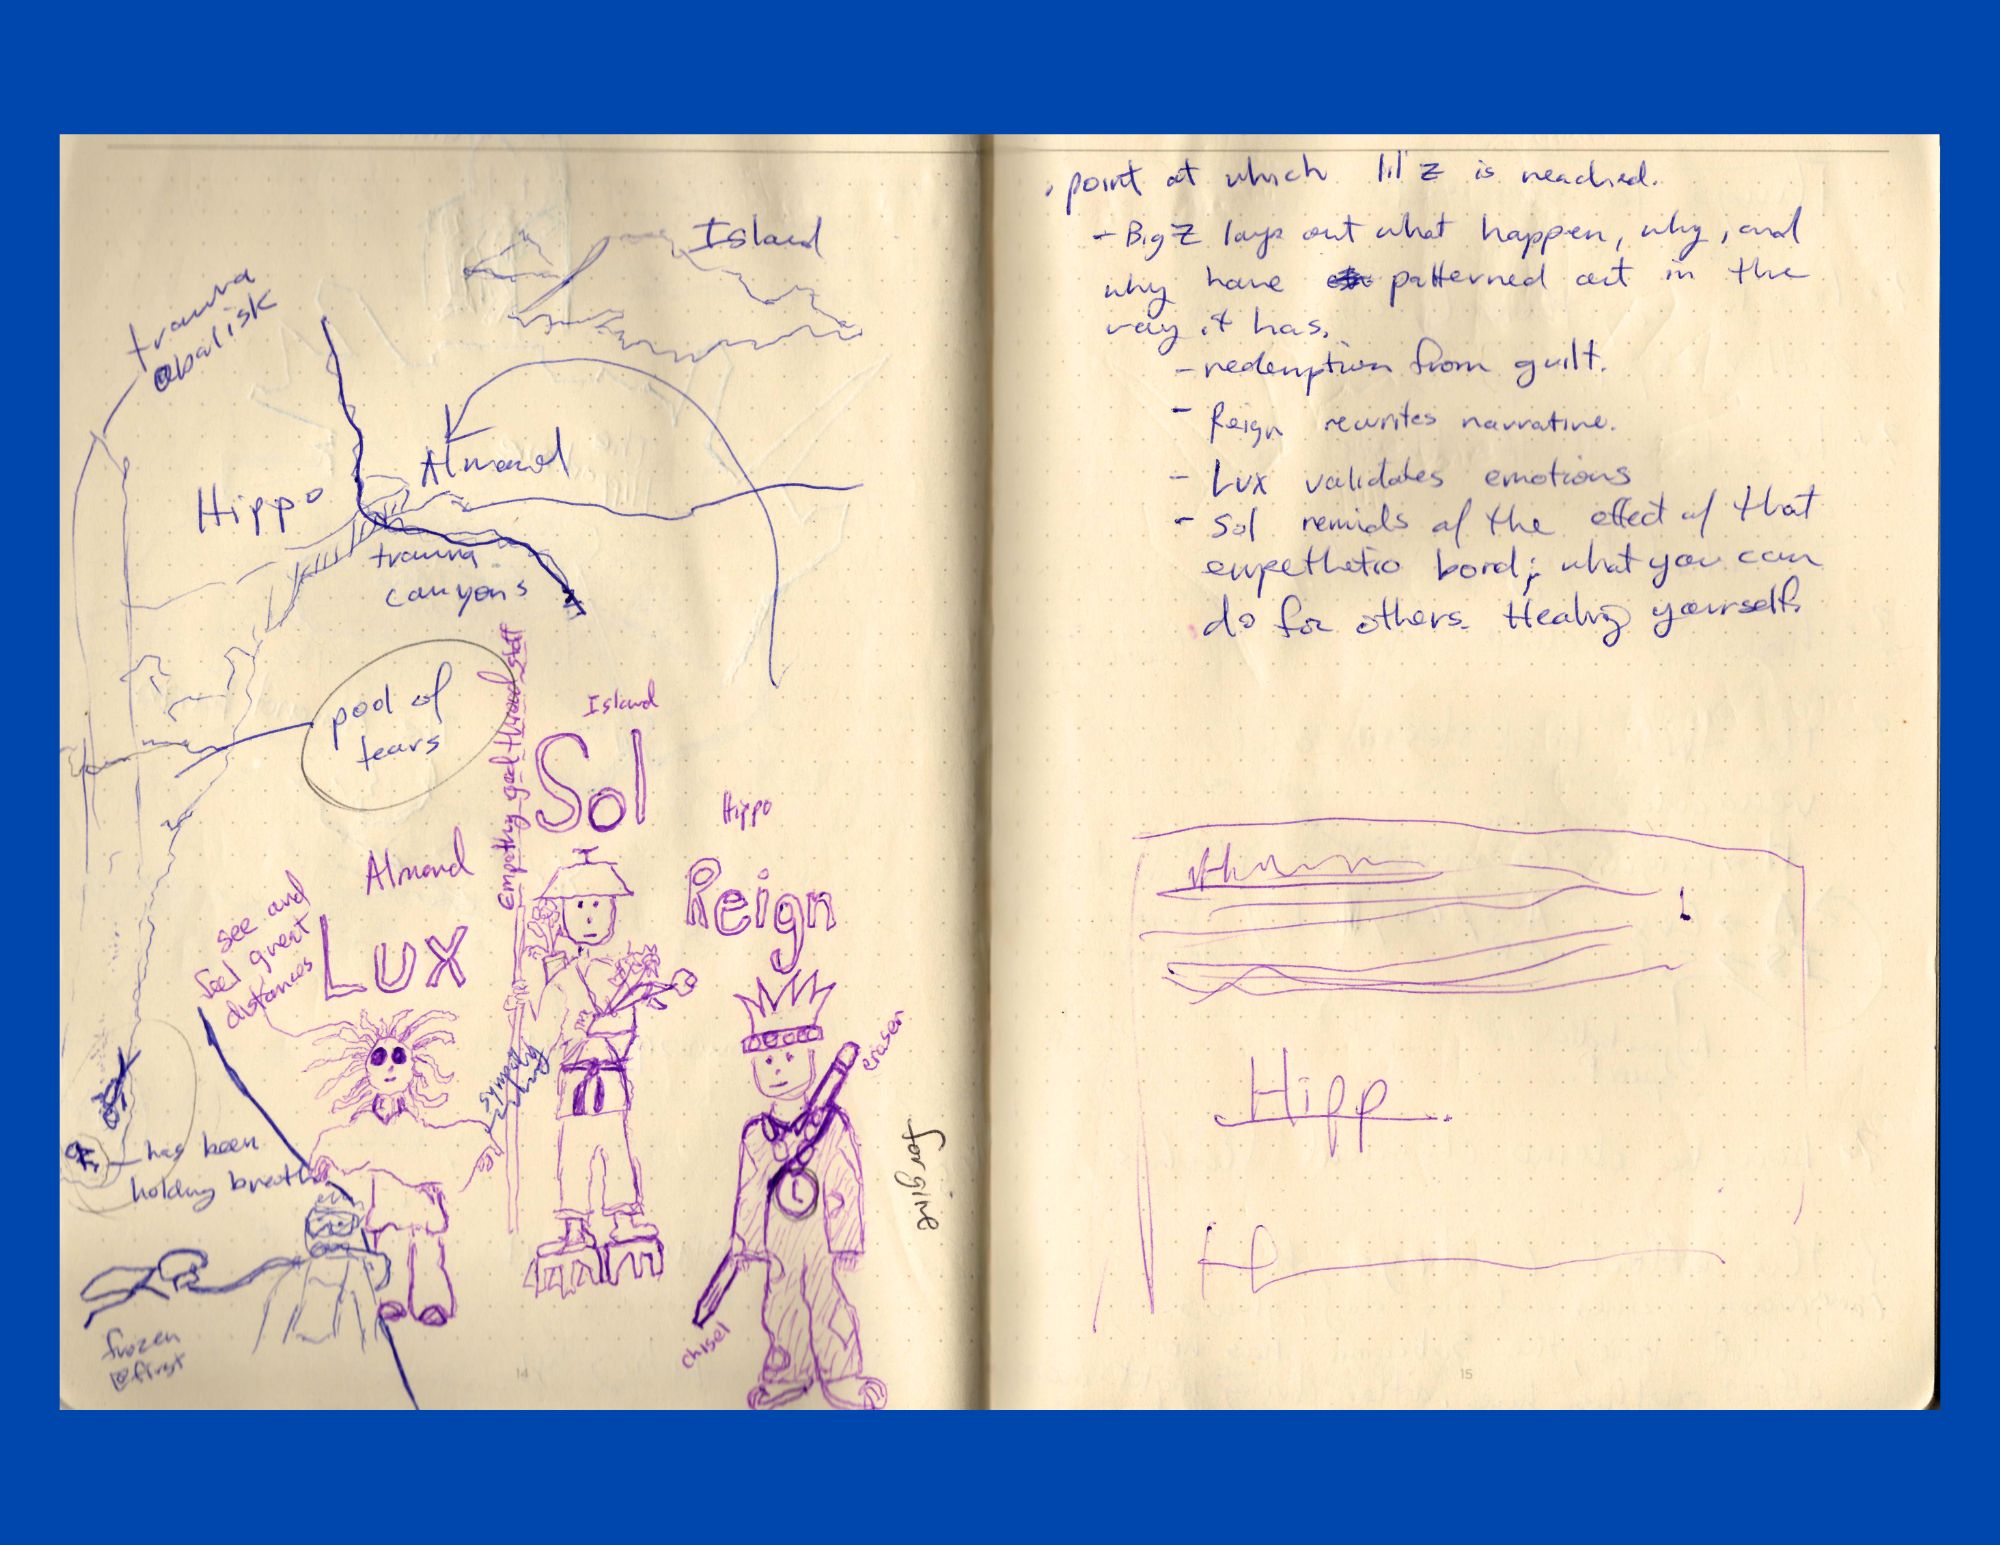 Island
trauma
@balisk
Almond
Hippo
trauma
canyons
pool of
tears
Empathy gold thread staff
Island
Sol
Hippo
Reign
Almond
Lux
see and
feel great
distances
eraser
sympathy
forgive
has been
holding breath
chisel
frozen
@first
14
point at which lil'z is reached.
- Big Z lays out what happen, why, and
why have patterned out in the
way it has.
- redemption from guilt.
- Reign rewrites narrative.
- Lux validates emotions
- Sol remids of the effect of that
empethetic bond; what you can
do for others. Healing yourself.
Hipp
15